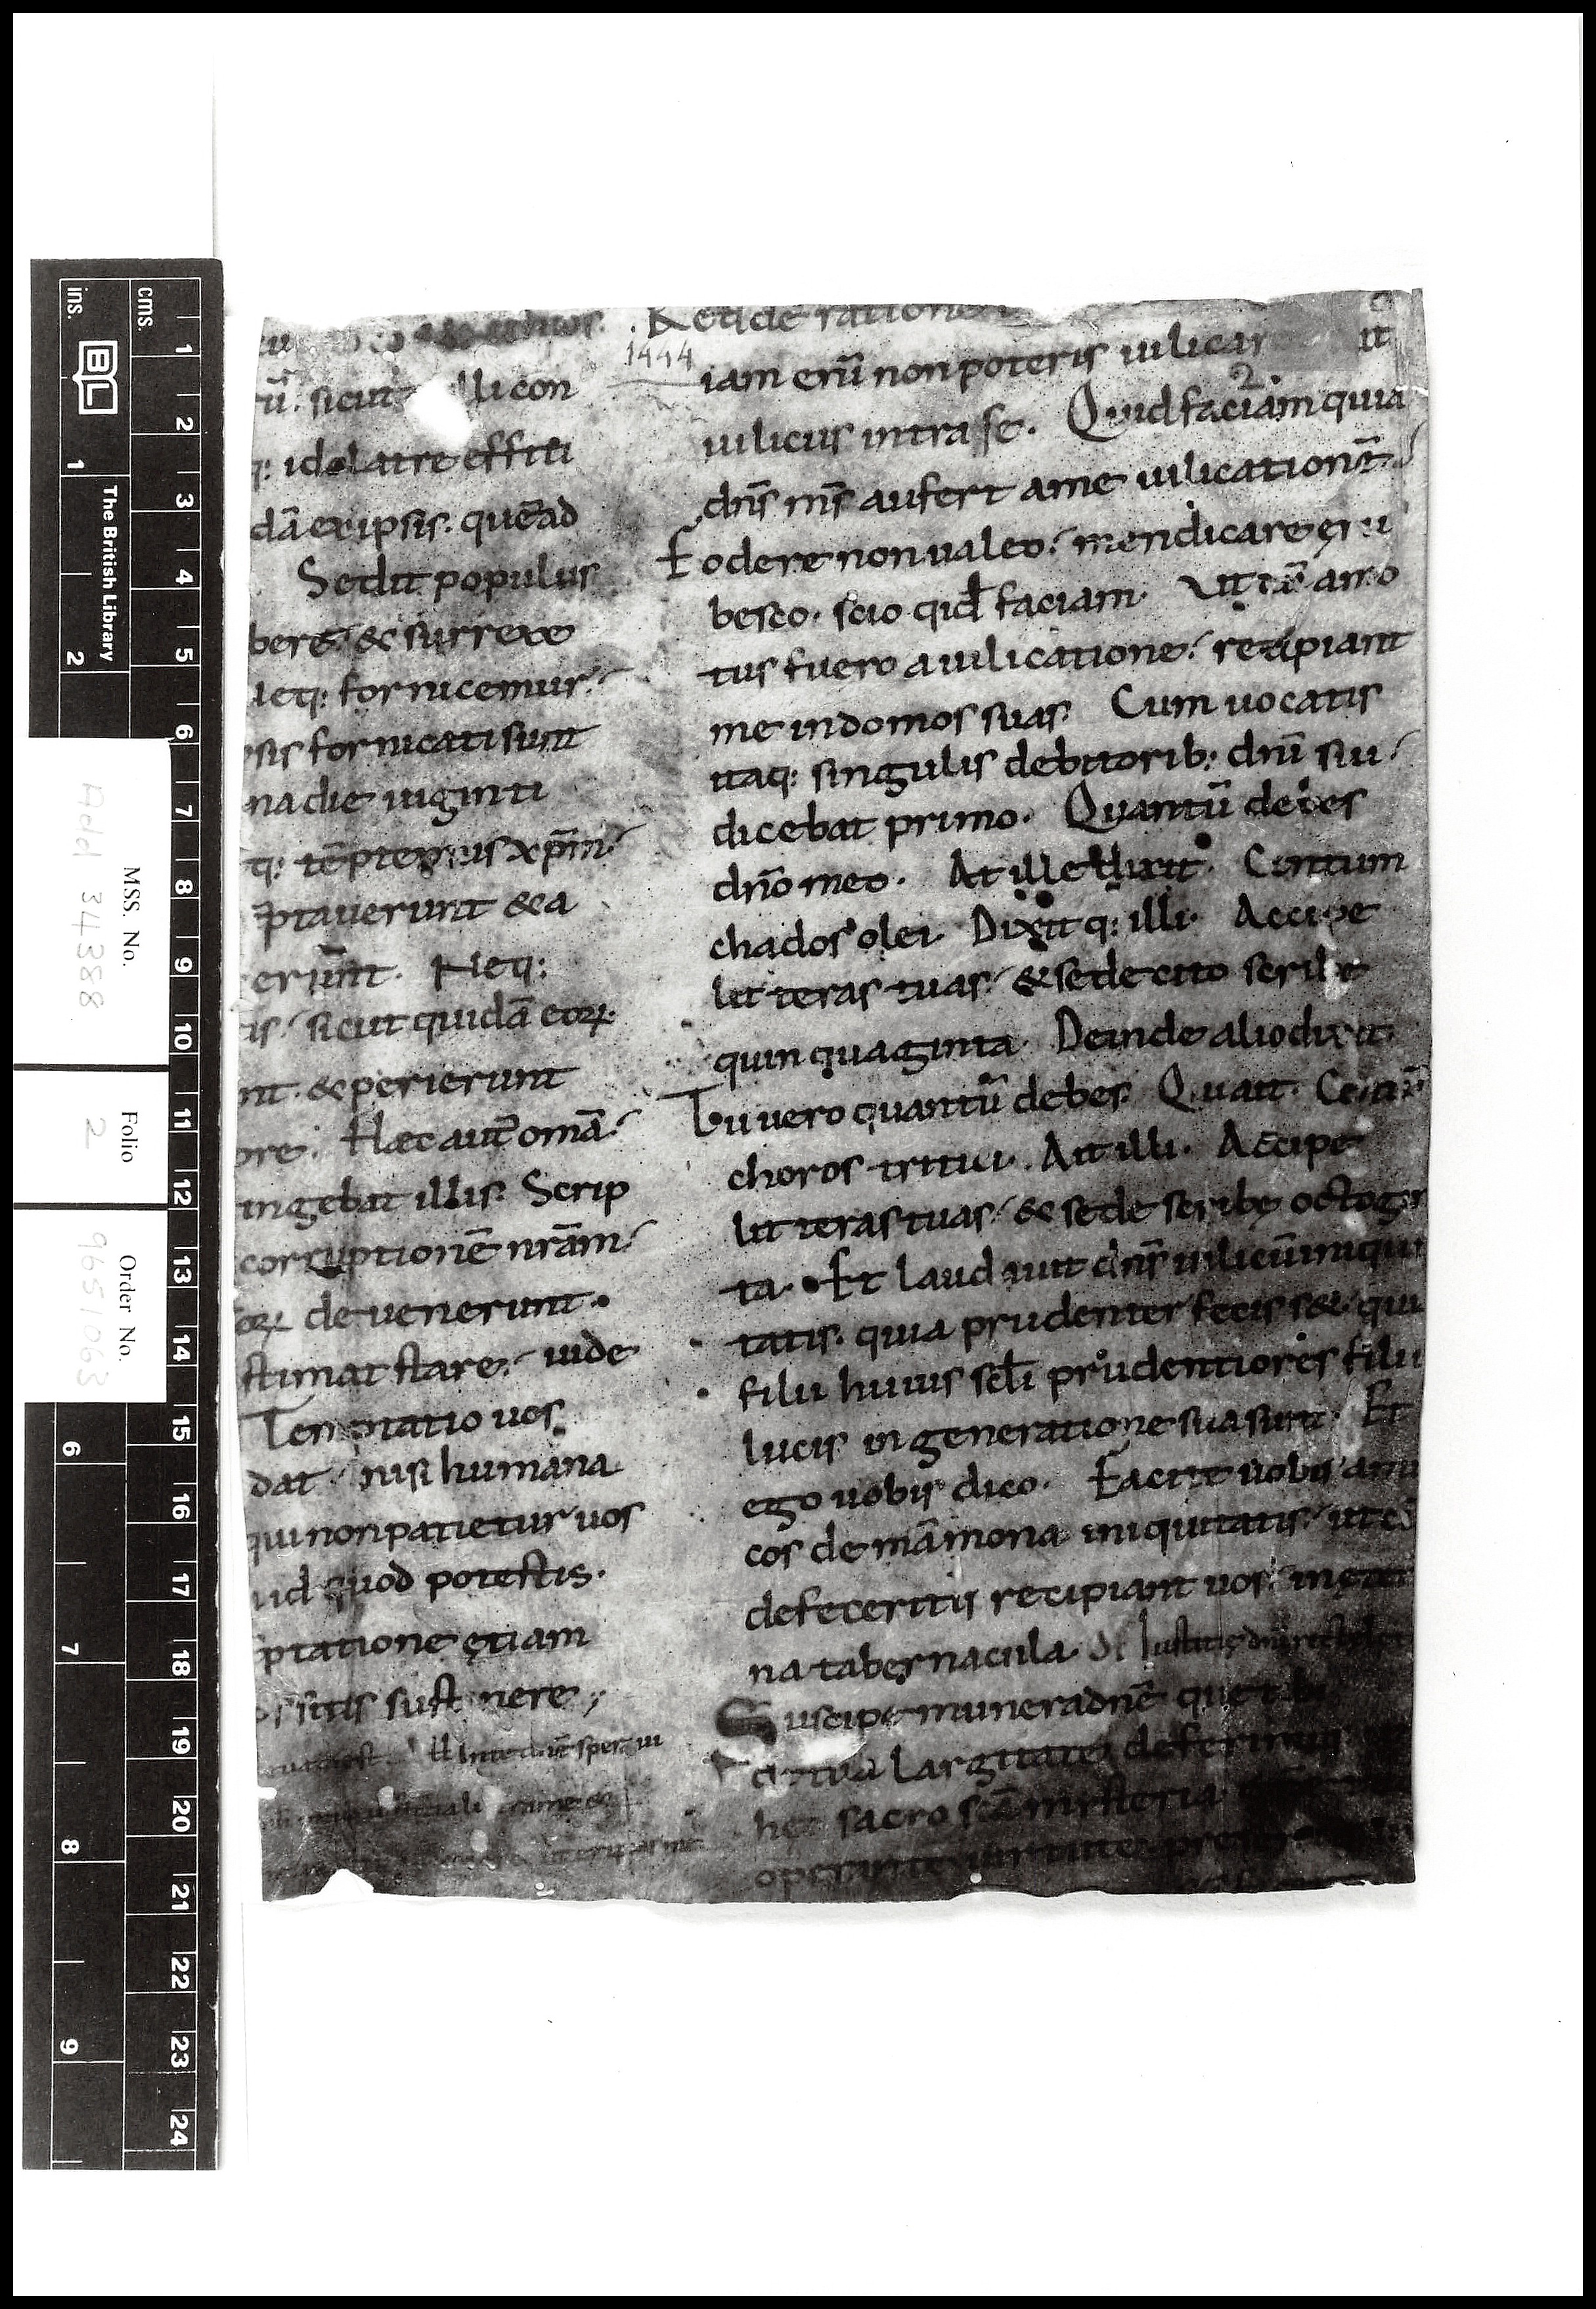 1444
ū. sicut lli con
q: idolatre effiti
dā ex ipsis. quēad
Sedit populus
bere. & surrexe
Neq: fornicemur.
sis fornicati sunt
na die uiginti
q: tēptemus xp̄m.
ptauerunt & a
erunt. Neq:
is. sicut quidā eoꝝ
nt. & perierunt
ore. Hæc aut̄ om̄ā.
ingebat illis. Scrip
corruptionē nr̄am.
oꝝ deuenerunt.
stimat stare. uide
Temptatio uos
dat. nisi humana
qui non patietur uos
id quod potestis.
ptatione ętiam
ossitis sustinere;
In te dn̄e speraui
Redde ratione
iam eni̅ non poteris uilicar it
2
uilicus intra se. Quid faciam quia
dn̄s m̄s aufert a me uilicationē.
Fodere non ualeo. mendicare eru
besco. scio qid̄ faciam. Ut cū amo
tus fuero a uilicatione. recipiant
me in domos suas. Cum uocatis
itaq: singulis debitorib: dn̄i sui.
dicebat primo. Quantū debes
dn̄o meo. At ille dixit. Centum
chados olei. Dixitq: illi. Accipe
litteras tuas. & sede cito scribe
quinquaginta. Deinde alio dixit.
Tu uero quantū debes. Qui ait. Centū
choros tritici. Ait illi. Accipe
litteras tuas. & sede scribe octogin
ta. Et laudauit dn̄s uilicū iniqui
tatis. quia prudenter fecisset. qui
filii huius scl̄i prudentiores filii
lucis in generatione sua sunt. Et
ego uobis dico. Facite uobis ami
cos de māmona iniquitatis. ut cū
defeceritis recipiant uos. in ęter
na tabernacula. Of Iustitię dn̄i
Suscipe munera dn̄e que tibi
de tua largitate deferimus
hec sacro scā misteria
operante uirtute
MSS. No.
Add 34388
Folio
2
Order No.
9651063
The British Library
BL
cms.
ins.
1
2
3
4
5
6
7
8
9
10
11
12
13
14
15
16
17
18
19
20
21
22
23
24
1
2
6
7
8
9